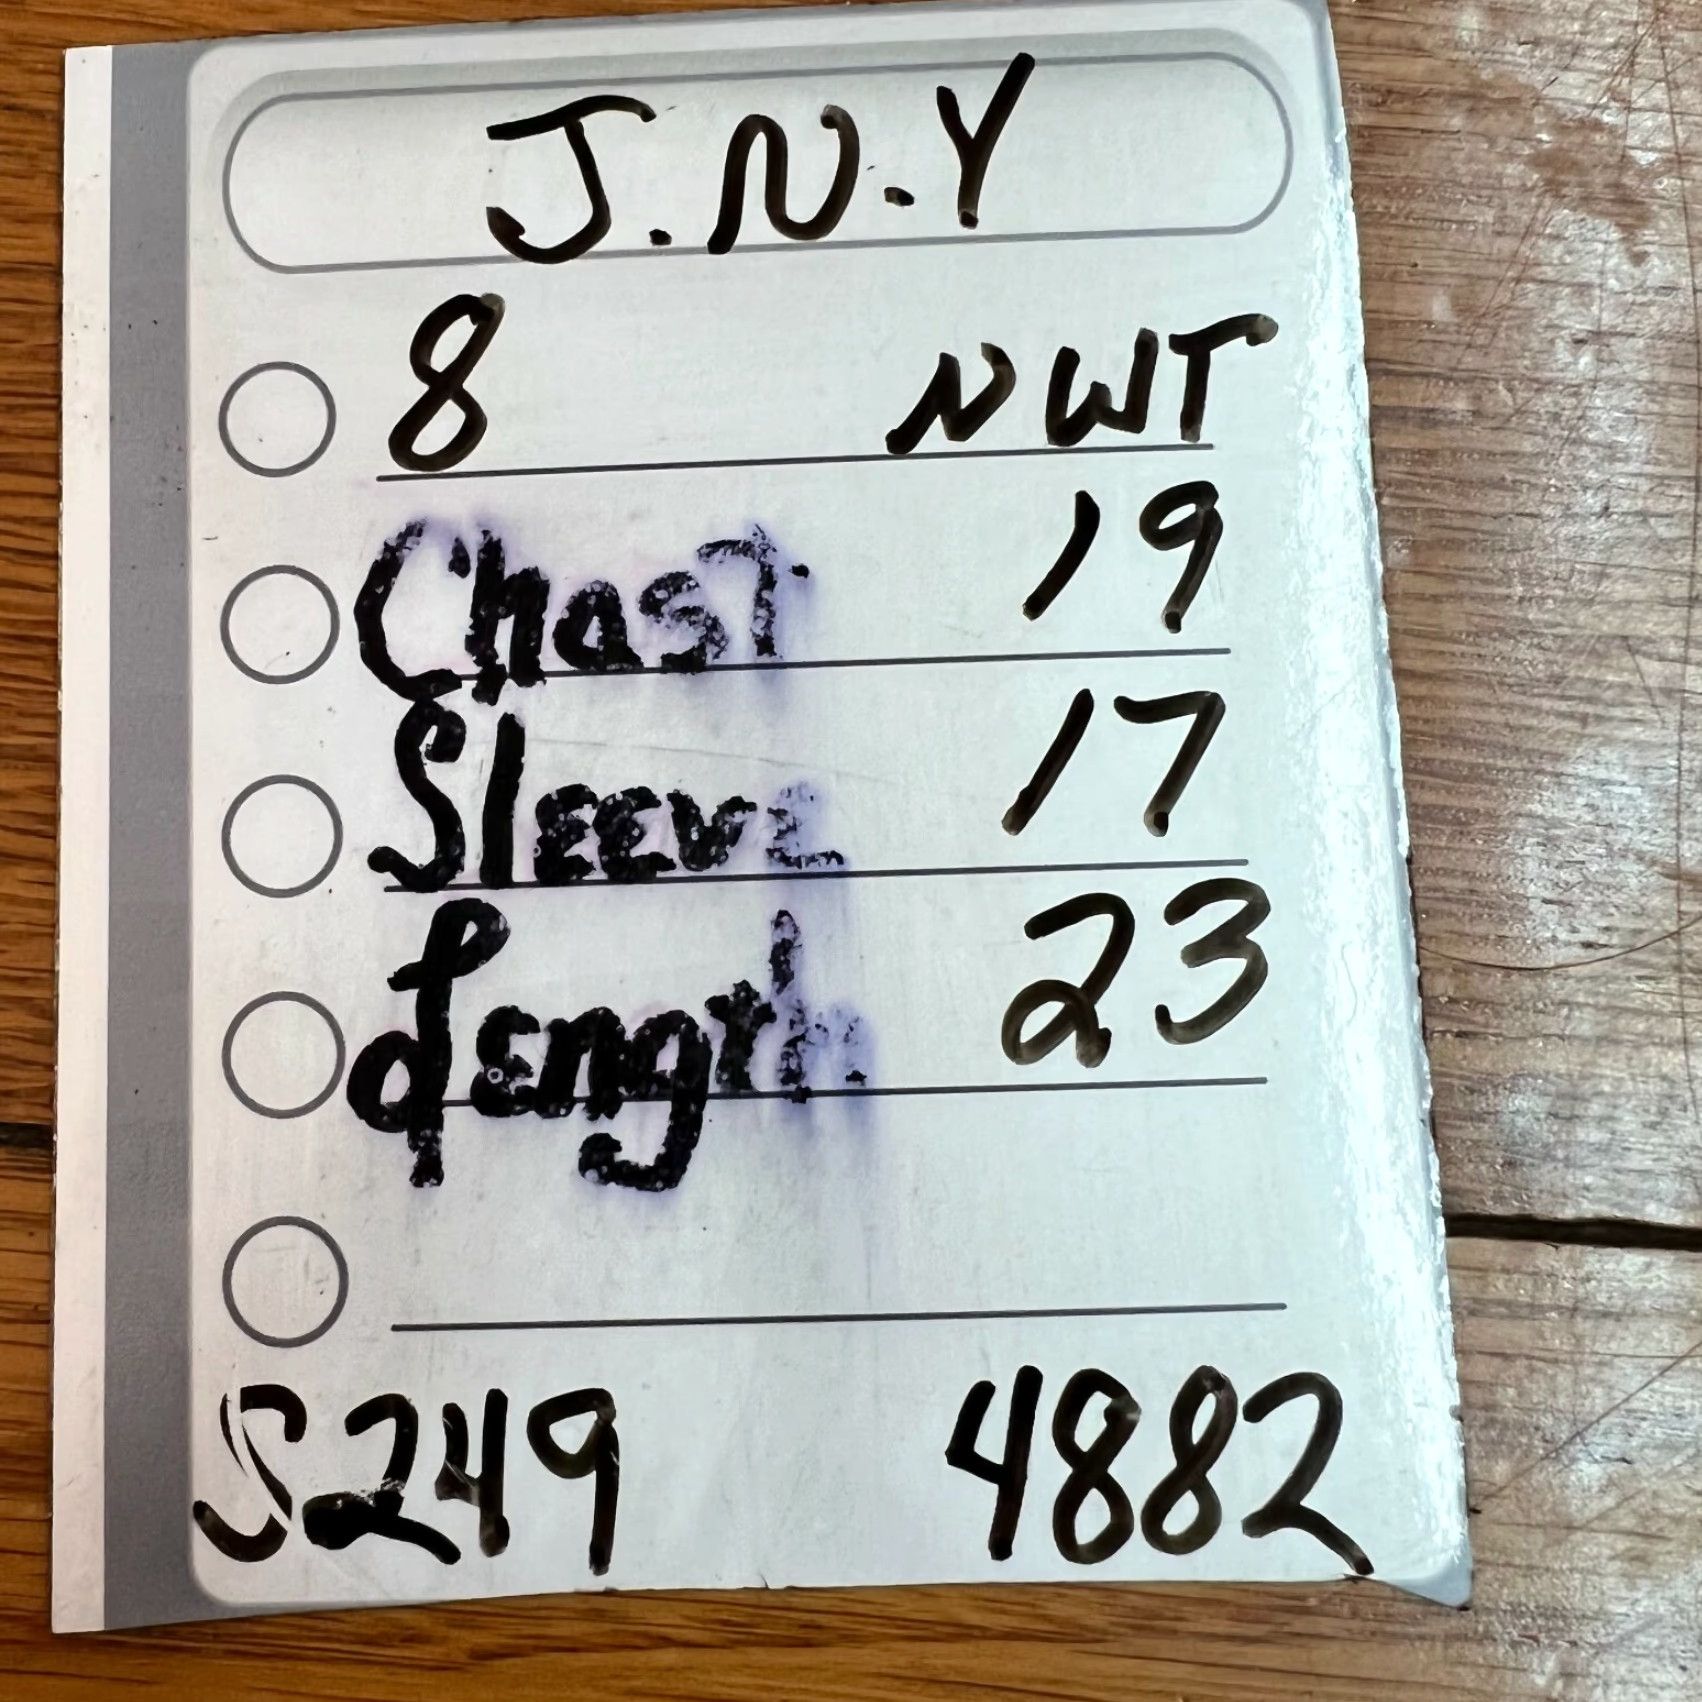 J.N.Y
8 NWT
Chast 19
Sleeve 17
Length 23
S249 4882